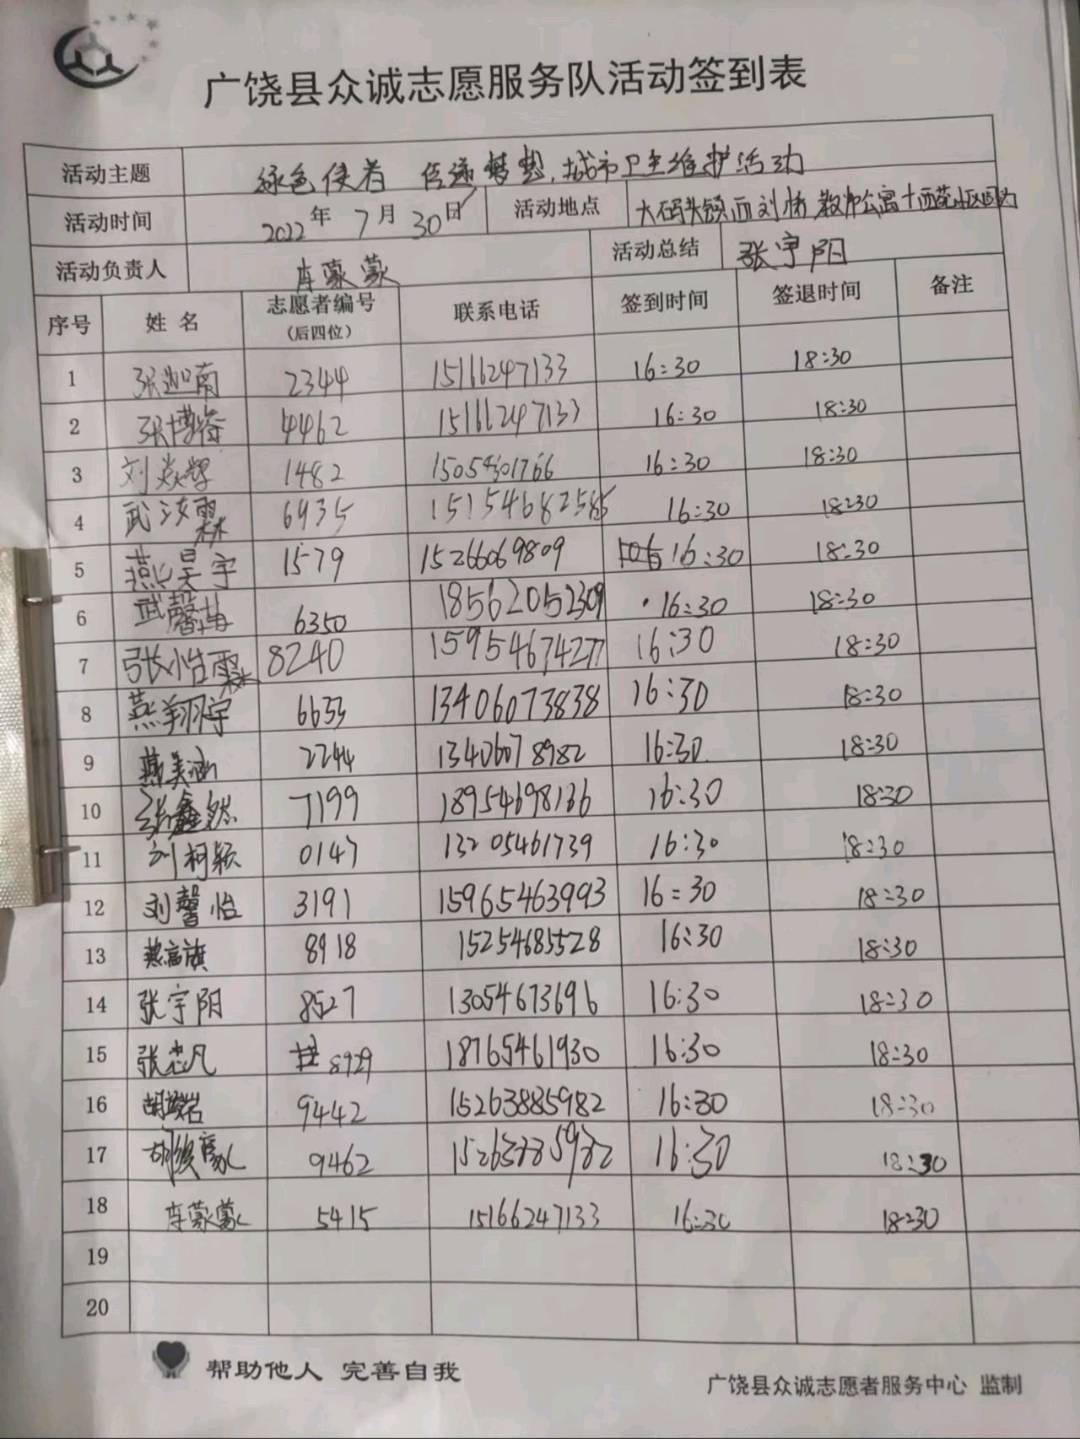 广饶县众诚志愿服务队活动签到表
活动主题 绿色使者 传递梦想,城市卫生维护活动
活动时间 2022年7月30日 活动地点 大码头镇西刘桥教师公寓十西苑小区
活动负责人 车蒙蒙 活动总结 张宇阳
序号 姓名 志愿者编号(后四位) 联系电话 签到时间 签退时间 备注
1 张迦南 2344 15166247133 16:30 18:30
2 张博裕 4462 15166247133 16:30 18:30
3 刘焱辉 1482 15054301766 16:30 18:30
4 武汶霖 6935 15154682585 16:30 18:30
5 燕昊宇 1579 15266069809 16:30 18:30
6 武馨苒 6350 18562052309 16:30 18:30
7 张怡霖 8240 15954674277 16:30 18:30
8 燕翔宇 6633 13406073838 16:30 18:30
9 燕美涵 2244 13406078982 16:30 18:30
10 张鑫然 7199 18954698166 16:30 18:30
11 刘柯颖 0147 13205461739 16:30 18:30
12 刘馨怡 3191 15965463993 16:30 18:30
13 燕高旗 8918 15254685528 16:30 18:30
14 张宇阳 8527 13054673696 16:30 18:30
15 张芯凡 8929 18765461930 16:30 18:30
16 9442 15263885982 16:30 18:30
17 9462 15263885982 16:30 18:30
18 车蒙蒙 5415 15166247133 16:30 18:30
19
20
帮助他人 完善自我
广饶县众诚志愿者服务中心 监制